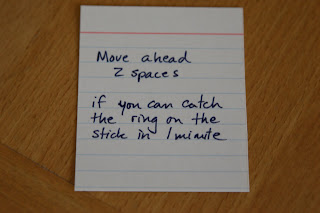 Move ahead
2 spaces
if you can catch
the ring on the
stick in 1 minute